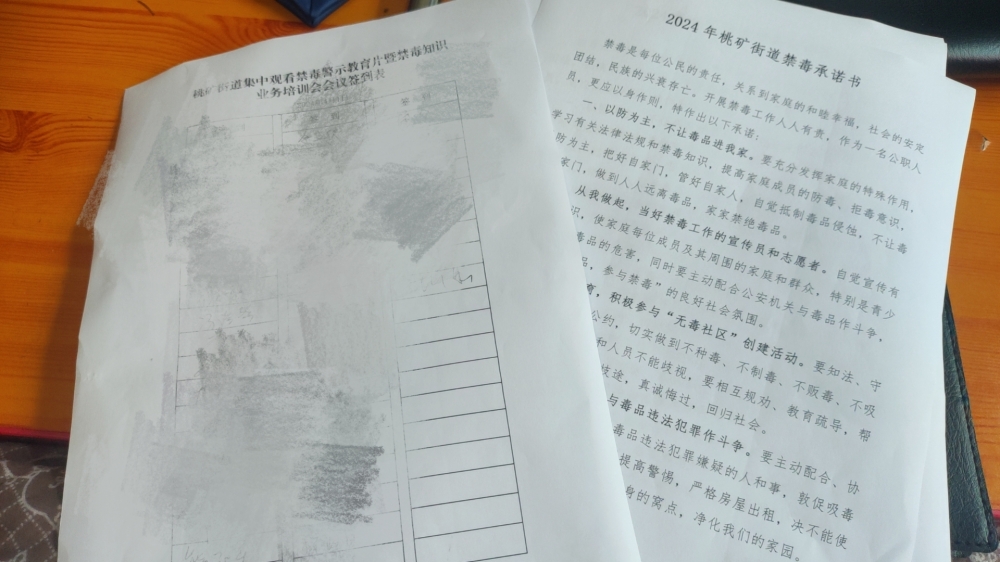 桃矿街道集中观看禁毒警示教育片暨禁毒知识
业务培训会会议签到表
2024年桃矿街道禁毒承诺书
禁毒是每位公民的责任，关系到家庭的和睦幸福，社会的安定
团结，民族的兴衰存亡。开展禁毒工作人人有责，作为一名公职人
员，更应以身作则，特作出以下承诺：
一、以防为主，不让毒品进我家。要充分发挥家庭的特殊作用，
学习有关法律法规和禁毒知识，提高家庭成员的防毒、拒毒意识，
防为主，把好自家门，管好自家人，自觉抵制毒品侵蚀，不让毒
家门，做到人人远离毒品，家家禁绝毒品。
从我做起，当好禁毒工作的宣传员和志愿者。自觉宣传有
识，使家庭每位成员及其周围的家庭和群众，特别是青少
毒品的危害，同时要主动配合公安机关与毒品作斗争，
品，参与禁毒”的良好社会氛围。
育，积极参与“无毒社区”创建活动。要知法、守
公约，切实做到不种毒、不制毒、不贩毒、不吸
和人员不能歧视，要相互规劝、教育疏导，帮
歧途，真诚悔过，回归社会。
与毒品违法犯罪作斗争。要主动配合、协
毒品违法犯罪嫌疑的人和事，敦促吸毒
提高警惕，严格房屋出租，决不能使
身的窝点，净化我们的家园。